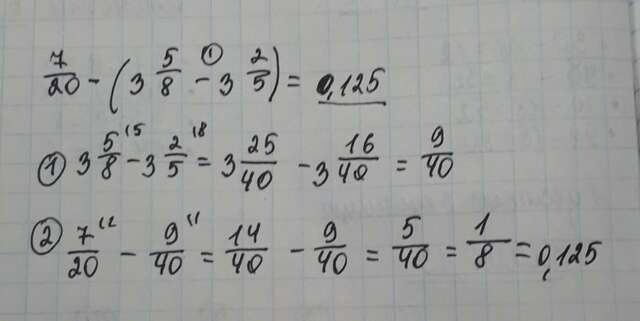 7/20 - (3 5/8 - 3 2/5) = 0,125
① 3 5/8 - 3 2/5 = 3 25/40 - 3 16/40 = 9/40
② 7/20 - 9/40 = 14/40 - 9/40 = 5/40 = 1/8 = 0,125